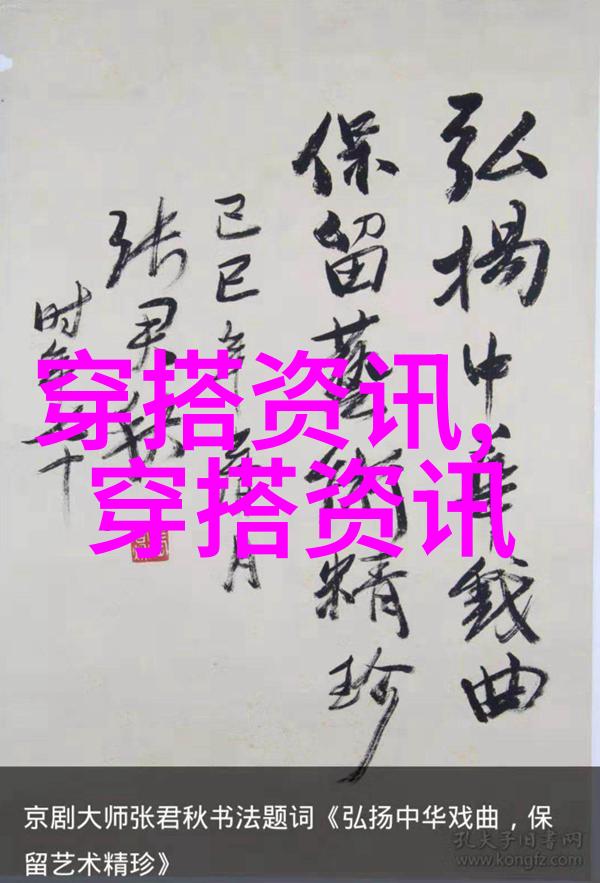 弘揚中華戲曲
保留藝術精珍
己巳年月
张君秋
时年七十
穿搭资讯,
穿搭资讯
京剧大师张君秋书法题词《弘扬中华戏曲，保
留艺术精珍》
孔夫子旧书网
www.kongfz.com